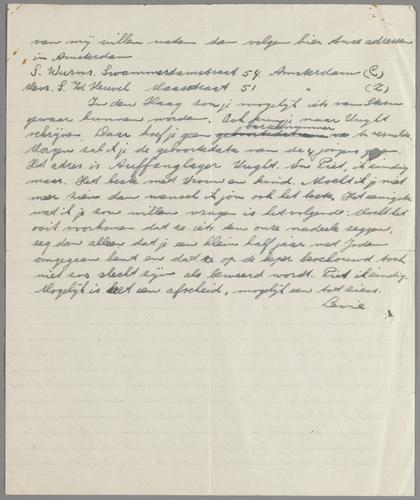 van mij willen weten dan volgen hier twee adressen
in Amsterdam
S. Wurms. Swammerdamstraat 54. Amsterdam (C)
Mevr. S. v.d. Heuvel Maasstraat 51 " (Z)
In den Haag zou je mogelijk iets van Stern
gewaar kunnen worden. Ook kun je naar Vught
schrijven. Daar hoef je geen baraknummer te vermelden.
Morgen zal ik je de geboortedata van de 4 jongens
Het adres is Auffanglager Vught. Nu Piet, ik eindig
maar. Het beste met Vrouw en kind. Mocht ik je niet
meer zien dan wensch ik jou ook het beste. Het eenigste
wat ik je zou willen vragen is het volgende: Mocht het
ooit voorkomen dat ze iets ten onze nadeele zeggen,
zeg dan alleen dat je een klein half jaar met Joden
omgegaan bent en dat ze op de keper beschouwd toch
niet zoo slecht zijn als beweerd wordt. Piet ik eindig.
Mogelijk is het een afscheid, mogelijk een tot ziens.
Levie